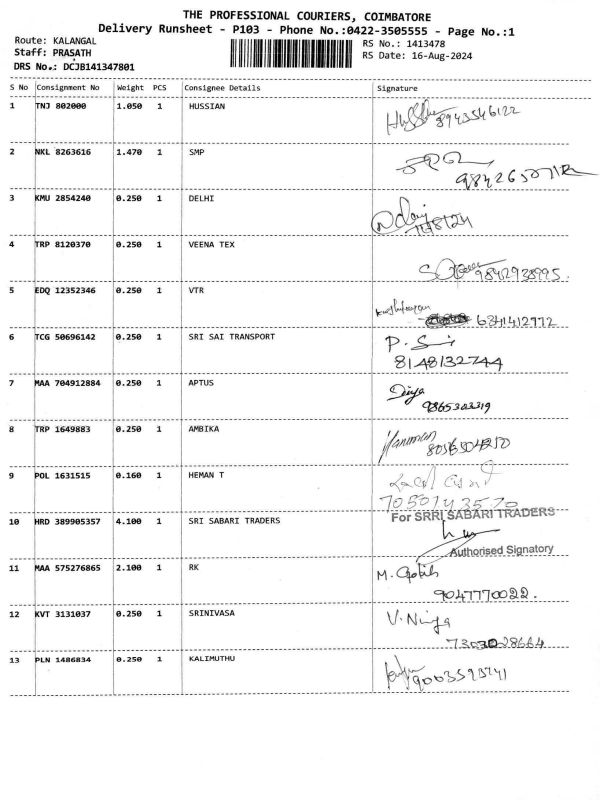 THE PROFESSIONAL COURIERS, COIMBATORE
Delivery Runsheet - P103 - Phone No.:0422-3505555 - Page No.:1
Route: KALANGAL
Staff: PRASATH
DRS No.: DCJB141347801
RS No.: 1413478
RS Date: 16-Aug-2024
S No Consignment No Weight PCS Consignee Details Signature
1 TNJ 802000 1.050 1 HUSSIAN
8943546122
2 NKL 8263616 1.470 1 SMP
3 KMU 2854240 0.250 1 DELHI
4 TRP 8120370 0.250 1 VEENA TEX
9842938995.
5 EDQ 12352346 0.250 1 VTR
6341412772
6 TCG 50696142 0.250 1 SRI SAI TRANSPORT
8148132744
7 MAA 704912884 0.250 1 APTUS
Divya
9865303319
8 TRP 1649883 0.250 1 AMBIKA
9 POL 1631515 0.160 1 HEMAN T
7050743570
10 HRD 389905357 4.100 1 SRI SABARI TRADERS
For SRRI SABARI TRADERS
Authorised Signatory
11 MAA 575276865 2.100 1 RK
9047770022.
12 KVT 3131037 0.250 1 SRINIVASA
7303028664
13 PLN 1486834 0.250 1 KALIMUTHU